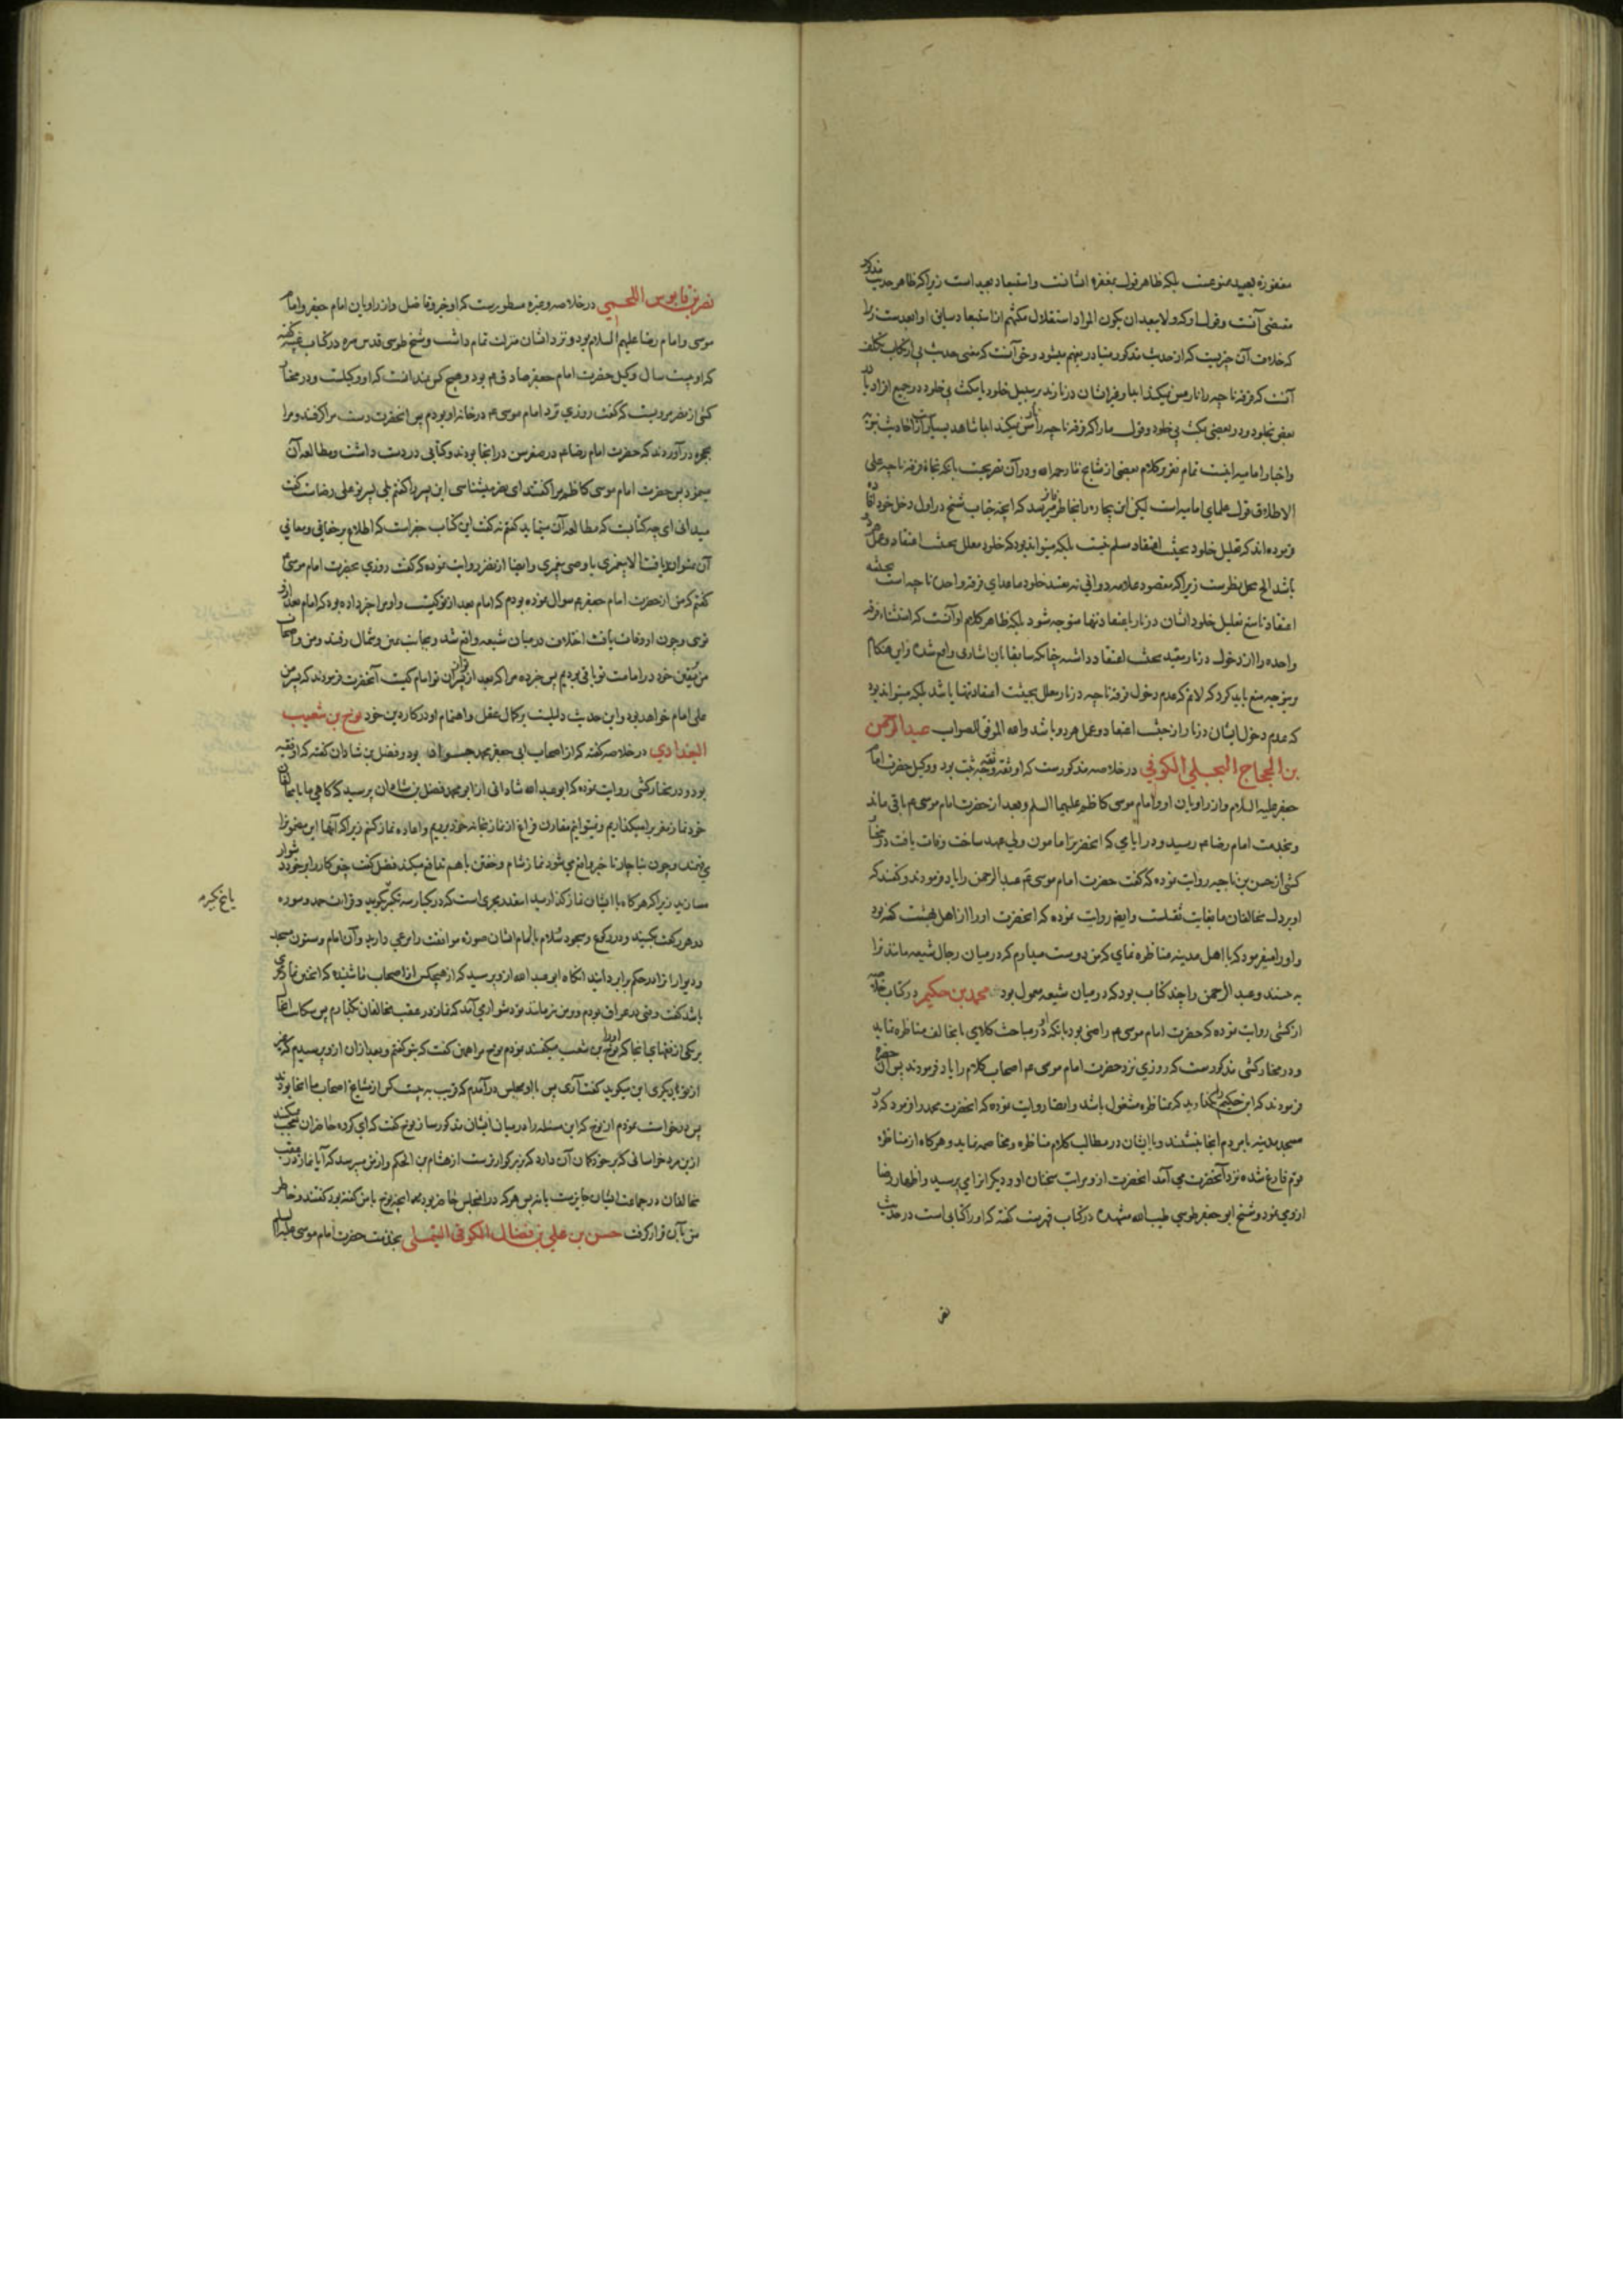 مغفورة بعید ممنوعست بلکه ظاهر قول بمغفره ایشانست و استبعاد بعید است زیرا که ظاهر حدیث مذکور
مقتضی آنست و قول او که ولا یبعد ان یکون المراد استقلال مکثهم
که خلاف آن چیزیست که از حدیث مذکور متبادر بفهم میشود و حق آنست که معنی حدیث
آنست که فرقه ناجیه را نار مس نمیکند اما و غیر ایشان در نارند بر سبیل خلود یا مکث بی خلود در جمیع افراد یا
بعضی بخلود و در بعضی مکث بی خلود و قول ما را که فرقه ناجیه را نار مس نمیکند اما شاهد بسیار از احادیث نبویه
و اخبار امامیه اینست تمام تقریر کلام بعضی از مشایخ ما رحمه الله و در آن تصریحست بآنکه نجاة فرقه ناجیه علی
الاطلاق قول علمای امامیه است لیکن این بیچاره را بخاطر فاتر میرسد که آنچه جناب شیخ در اول دخل خود افاده
فرموده اند که تعلیل خلود بحیثیت اعتقاد مسلم نیست بلکه میتواند بود که خلود معلل بحیثیت اعتقاد و عمل هر دو
باشد الخ محل نظرست زیرا که مقصود علامه دوانی نه بعینه خلود ماعدای فرقه واحده ناجیه است بحیثیت
اعتقاد تا منع تعلیل خلود ایشان در نار باعتقاد تنها متوجه شود بلکه ظاهر کلام او آنست که استثناء فرقه
واحده را از دخول در نار مقید بحیثیت اعتقاد داشته چنانکه سابقا بآن اشارتی واقع شده و این هنگام
در توجیه منع باید کرد که لانم که عدم دخول فرقه ناجیه در نار معلل بحیثیت اعتقاد تنها باشد بلکه میتواند بود
که عدم دخول ایشان در نار از حیثیت اعتقاد و عمل هر دو باشد والله الموفق للصواب عبد الرحمن
بن الحجاج البجلی الکوفی در خلاصه مذکورست که او ثقه ثقه وجه ثبت بود و وکیل حضرت امام
جعفر علیه السلام و از راویان او و امام موسی کاظم علیهما السلم و بعد از حضرت امام موسی ع باقی ماند
و بخدمت امام رضا ع رسید و در ایامی که آنحضرت را مامون ولی عهد ساخت وفات یافت و در مختار
کشی از حسن بن ناجیه روایت نموده که گفت حضرت امام موسی ع عبد الرحمن را یاد فرمودند و گفتند که
او بر دل مخالفان ما بغایت ثقیلست و ایضا روایت نموده که آنحضرت او را از اهل بهشت گفته بود
و او را میفرمود که با اهل مدینه مناظره نمای که من دوست میدارم که در میان رجال شیعه مانند ترا
به بینند و عبد الرحمن را چند کتاب بود که در میان شیعه معمول بود محمد بن حکیم در کتاب خلاصه
از کشی روایت نموده که حضرت امام موسی ع راضی بود بآنکه او در مباحث کلامی با مخالف مناظره نماید
و در مختار کشی مذکورست که روزی نزد حضرت امام موسی ع اصحاب کلام را یاد فرمودند پس آن حضرت
فرمودند که ابن حکیم را بگذارید که بمناظره مشغول باشد و ایضا روایت نموده که آنحضرت محمد را فرمود که در
مسجد مدینه با مردم آنجا بنشیند و با ایشان در مطالب کلام مناظره و مخاصمه نماید و هرگاه از مناظره
قوم فارغ شده نزد آنحضرت می آمد آنحضرت ازو مراتب سخنان او و دیگران را می پرسید و اظهار رضا
ازوی نمود و شیخ ابو جعفر طوسی طیب الله مشهده در کتاب فهرست گفته که او را کتابی است در حدیث
نصر
نصر بن قابوس اللخمی در خلاصه و غیره مسطورست که او خیر و فاضل و از راویان امام جعفر و امام
موسی و امام رضا علیهم السلام بود و نزد ایشان منزلت تمام داشت و شیخ طوسی قدس سره در کتاب غیبه گفته
که او بیست سال وکیل حضرت امام جعفر صادق ع بود و هیچ کس ندانست که او وکیلست و در مختار
کشی از نصر مرویست که گفت روزی نزد امام موسی ع در خانه او بودم پس آنحضرت دست مرا گرفتند و مرا
بحجره درآوردند که حضرت امام رضا ع در صغر سن در آنجا بودند و کتابی در دست داشت و مطالعه آن
مینمود پس حضرت امام موسی کاظم مرا گفتند ای نصر میشناسی این پسر را گفتم بلی پسر تو علی رضاست گفت
میدانی ای چه کتابست که مطالعه آن مینماید گفتم نه گفت این کتاب جفرست که اطلاع بر خفایا و معانی
آن نتواند یافت الا پیغمبری یا وصی پیغمبری و ایضا از نصر روایت نموده که گفت روزی بحضرت امام موسی ع
گفتم که من از حضرت امام جعفر ع سوال نموده بودم که امام بعد از تو کیست و او مرا خبر داده بود که امام بعد از او
توئی و چون او وفات یافت اختلاف در میان شیعه واقع شد و بجانب یمین و شمال رفتند و من و اصحاب
من بیقین خود در امامت تو باقی بودیم پس خبر ده مرا که بعد از تو از فرزندان تو امام کیست آنحضرت فرمودند که پسر من
علی امام خواهد بود و این حدیث دلیلست بر کمال عقل و اهتمام او در کار دین خود نوح بن شعیب
البغدادی در خلاصه گفته که از اصحاب ابی جعفر محمد جواد بود و فضل بن شاذان گفته که او فقیه
بود و در مختار کشی روایت نموده که ابو عبد الله شاذانی از ابو محمد فضل بن شاذان پرسید که گاهی ما با مخالفان
خود نماز مغرب را میگذاریم و نمیتوانیم مقارن فراغ از نماز بخانه خود برویم و اعاده نماز کنیم زیرا که آنها این معنی را
می فهمند و چون بناچار تاخیر واقع می شود نماز شام و خفتن باهم تدافع میکند فضل گفت چنین کار را بر خود دشوار
مسازید زیرا که هرگاه با ایشان نماز گذارید اینقدر مجزی است که در یکبار سه تکبیر بگوئید و قرائت حمد و سوره
در هر رکعت بکنید و در رکوع و سجود و سلام با امام ایشان صورة موافقت را مرعی دارید و آن امام و ستون مسجد
و دیوار او را در حکم برابر دانید آنگاه ابو عبد الله ازو پرسید که از هیچکس از اصحاب ما شنیده که اینچنین نماز مجزی
باشد گفت وقتی در عراق بودم و بر من نیز مانند تو دشوار می آمد که نماز در عقب مخالفان بگذارم پس
بر یکی از فقهای آنجا که او را نوح بن شعیب میگفتند نمودم نوح مرا همین گفت که بتو گفتم و بعد از آن ازو پرسیدم که غیر
از تو دیگری این میگوید گفت آری پس با او بمجلسی درآمدم که قریب به بیست کس از مشایخ اصحاب ما آنجا بودند
پس درخواست نمودم از نوح که این مسئله را در میان ایشان مذکور سازد نوح گفت که ای گروه حاضران تعجب میکنید
ازین مرد خراسانی که بر خود گمان آن دارد که بزرگوارترست از هشام بن الحکم و از من میپرسد که آیا نماز در عقب
مخالفان در جماعت ایشان جایزست یا نه پس هر که در آنمجلس حاضر بود همه آنچه نوح با من گفته بود گفتند و خاطر
من بآن قرار گرفت حسن بن علی بن فضال الکوفی التیملی بخدمت حضرت امام موسی علیه السلام